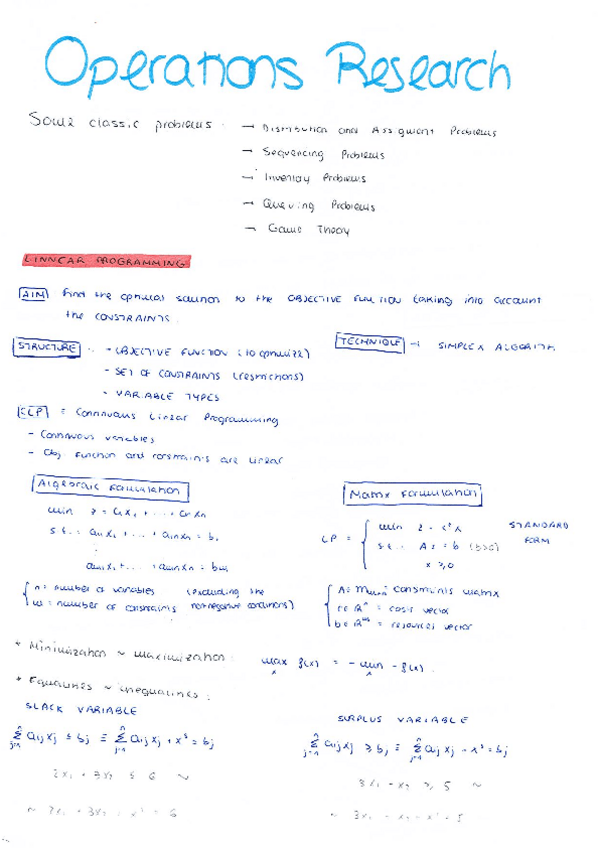 Operations Research
Some classic problems → Distribution and Assignment Problems
→ Sequencing Problems
→ Inventory Problems
→ Queuing Problems
→ Game Theory
LINNEAR PROGRAMMING
AIM Find the optimal solution to the OBJECTIVE FUNCTION taking into account
the CONSTRAINTS.
STRUCTURE - OBJECTIVE FUNCTION (to optimize)
- SET OF CONSTRAINTS (restrictions)
- VARIABLE TYPES
TECHNIQUE → SIMPLEX ALGORITHM
CLP = Continuous Linear Programming
- Continuous variables
- Obj. function and constraints are linear
Algebraic Formulation
min z = c₁x₁ + ... + cₙxₙ
s.t. a₁₁x₁ + ... + a₁ₙxₙ = b₁
n = number of variables (excluding the
m = number of constraints nonnegative conditions)
Matrix Formulation
LP = { min z = cᵗx STANDARD
s.t. Ax = b (b≥0) FORM
x ≥ 0
A = constraints matrix
c ∈ ℝⁿ = costs vector
b ∈ ℝᵐ = resources vector
* Minimization ~ maximization: max f(x) = - min - f(x)
x x
* Equalities ~ inequalities:
SLACK VARIABLE
n Σ j=1 aij xj ≤ bj ≡ n Σ j=1 aij xj + xˢ = bj
2x₁ + 3x₂ ≤ 6 ~
~ 2x₁ + 3x₂ + xˢ = 6
SURPLUS VARIABLE
n Σ j=1 aij xj ≥ bj ≡ n Σ j=1 aij xj xˢ = bj
3x₁ - x₂ ≥ 5 ~
~ 3x₁ - x₂ - xˢ = 5